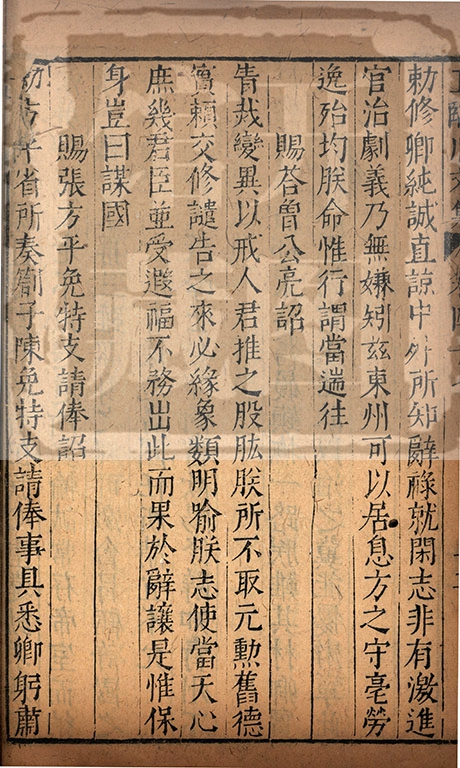 勅修卿純誠直諒中外所知辭祿就閑志非有激進
官治劇義乃無嫌矧茲東州可以居息方之守亳勞
逸殆均朕命惟行謂當遄往
賜荅曽公亮詔
眚烖變異以戒人君推之股肱朕所不取元勲舊德
實賴交修譴告之來必緣象類明喻朕志使當天心
庶幾君臣並受遐福不務出此而果於辭讓是惟保
身豈曰謀國
賜張方平免特支請俸詔
勅方平省所奏劄子陳免特支請俸事具悉卿躬肅